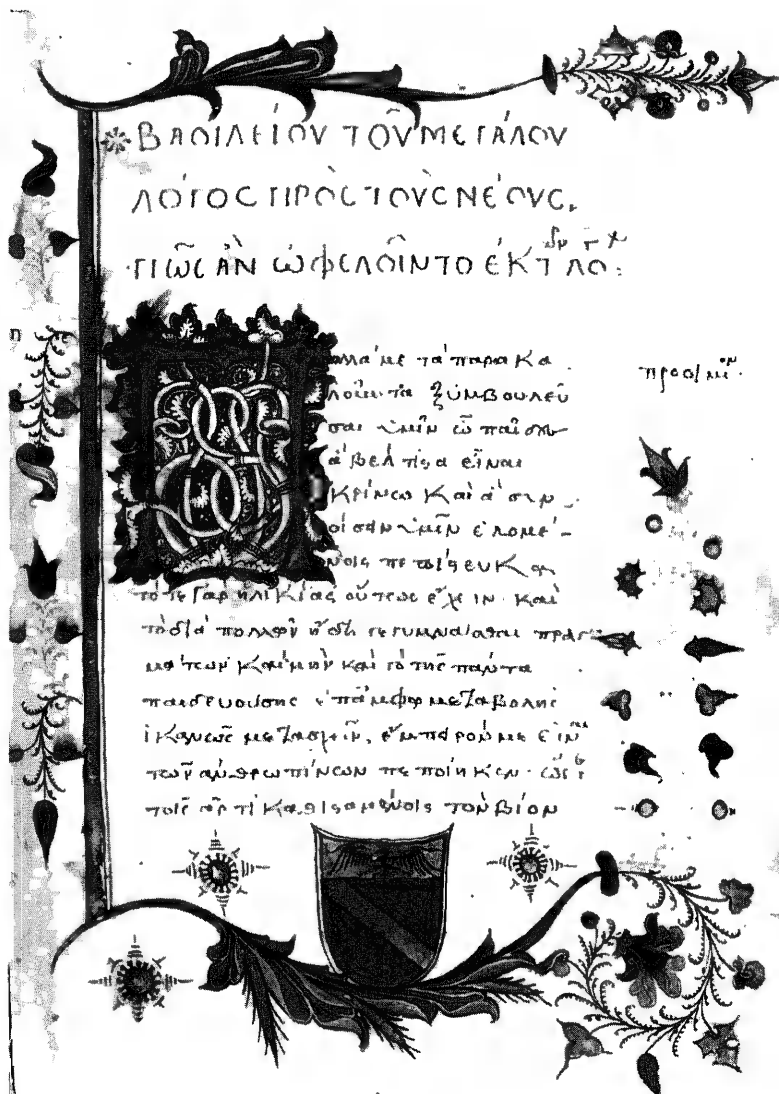 ΒΑΣΙΛΕΊΟΥ ΤΟΥ͂ ΜΕΓΆΛΟΥ
ΛΌΓΟΣ ΠΡῸΣ ΤΟῪΣ ΝΈΟΥΣ.
ΠΩ͂Σ ἊΝ ὨΦΕΛΟΙ͂ΝΤΟ ἘΞ
πολλά με τὰ παρακα
λοῦντα ξυμβουλεῦ
σαι ὑμῖν ὦ παῖδες
ἃ βέλτιστα εἶναι
κρίνω καὶ ἃ συν
οίσειν ὑμῖν ἑλομέ-
νοις πεπίστευκα
τό τε γὰρ ἡλικίας οὕτως ἔχειν· καὶ
τὸ διὰ πολλῶν ἤδη γεγυμνάσθαι πραγ
μάτων καὶ μὴν καὶ τὸ τῆς πάντα
παιδευούσης ἐπ' ἄμφω μεταβολῆς
ἱκανῶς μετασχεῖν, ἔμπειρόν με εἶναι
τῶν ἀνθρωπίνων πεποίηκεν· ὥστε
τοῖς ἄρτι καθισταμένοις τὸν βίον
προοίμιον.